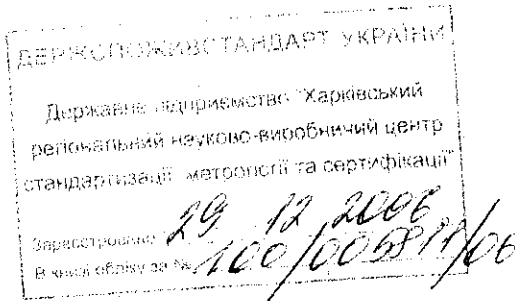 ДЕРЖСПОЖИВСТАНДАРТ УКРАЇНИ
Державне підприємство "Харківський
регіональний науково-виробничий центр
стандартизації метрології та сертифікації"
Зареєстровано 29 12 2006
В книзі обліку за № 100/005811/06